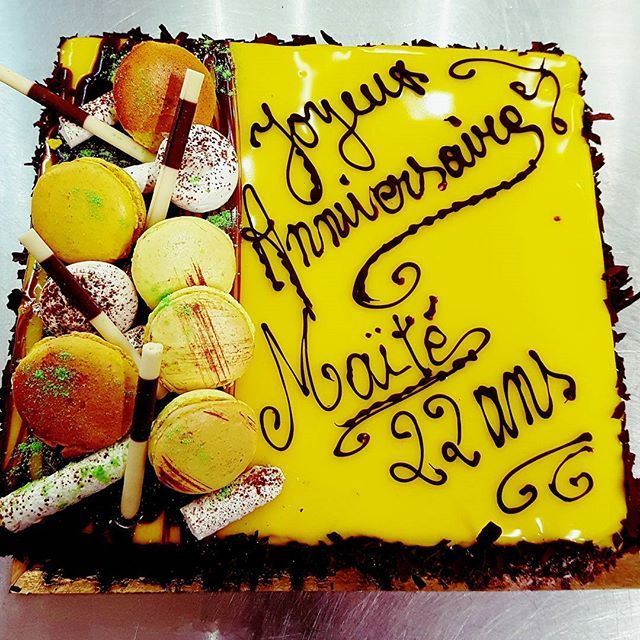 Joyeux
Anniversaire
Maïté
22 ans